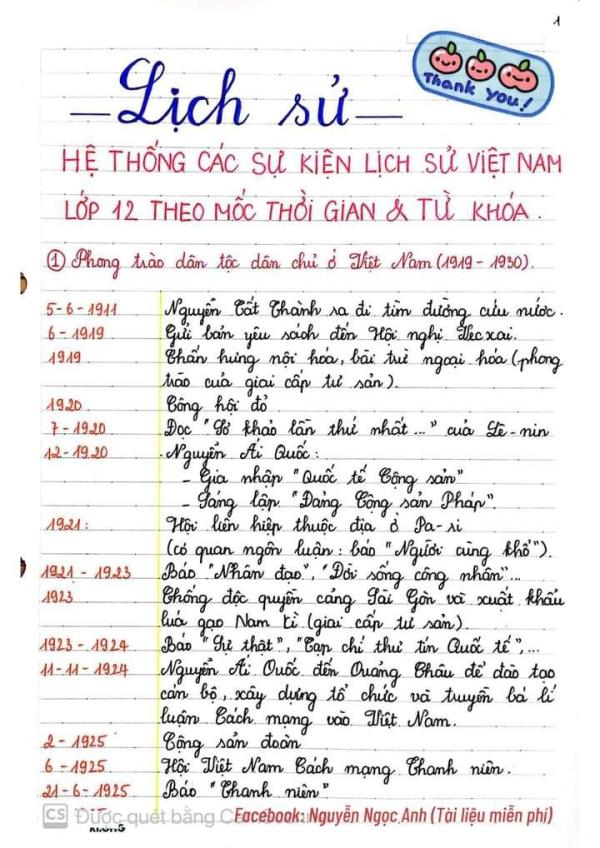 1
Thank you!
Lịch sử
HỆ THỐNG CÁC SỰ KIỆN LỊCH SỬ VIỆT NAM
LỚP 12 THEO MỐC THỜI GIAN & TỪ KHÓA.
① Phong trào dân tộc dân chủ ở Việt Nam (1919 - 1930).
5-6-1911 Nguyễn Tất Thành ra đi tìm đường cứu nước.
6-1919 Gửi bản yêu sách đến Hội nghị Vecxai.
1919 Chấn hưng nội hóa, bài trừ ngoại hóa (phong
trào của giai cấp tư sản).
1920 Công hội đỏ
7-1920 Đọc "Sơ khảo lần thứ nhất..." của Lê-nin
12-1920 Nguyễn Ái Quốc:
- Gia nhập "Quốc tế Cộng sản"
- Sáng lập "Đảng Cộng sản Pháp".
1921: Hội liên hiệp thuộc địa ở Pa-ri
(cơ quan ngôn luận: báo "Người cùng khổ").
1921 - 1923 Báo "Nhân đạo", "Đời sống công nhân"...
1923 Chống độc quyền cảng Sài Gòn và xuất khẩu
lúa gạo Nam Kì (giai cấp tư sản).
1923 - 1924 Báo "Sự thật", "Tạp chí thư tín Quốc tế",...
11-11-1924 Nguyễn Ái Quốc đến Quảng Châu để đào tạo
cán bộ, xây dựng tổ chức và truyền bá lí
luận Cách mạng vào Việt Nam.
2-1925 Cộng sản đoàn
6-1925 Hội Việt Nam Cách mạng Thanh niên.
21-6-1925 Báo "Thanh niên"
CS Được quét bằng Facebook: Nguyễn Ngọc Anh (Tài liệu miễn phí)